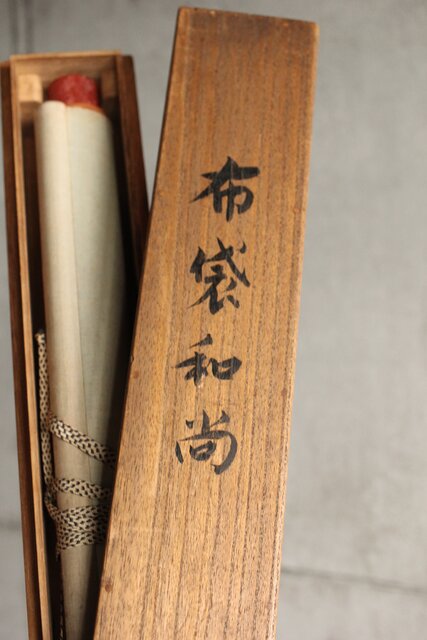 布袋和尚